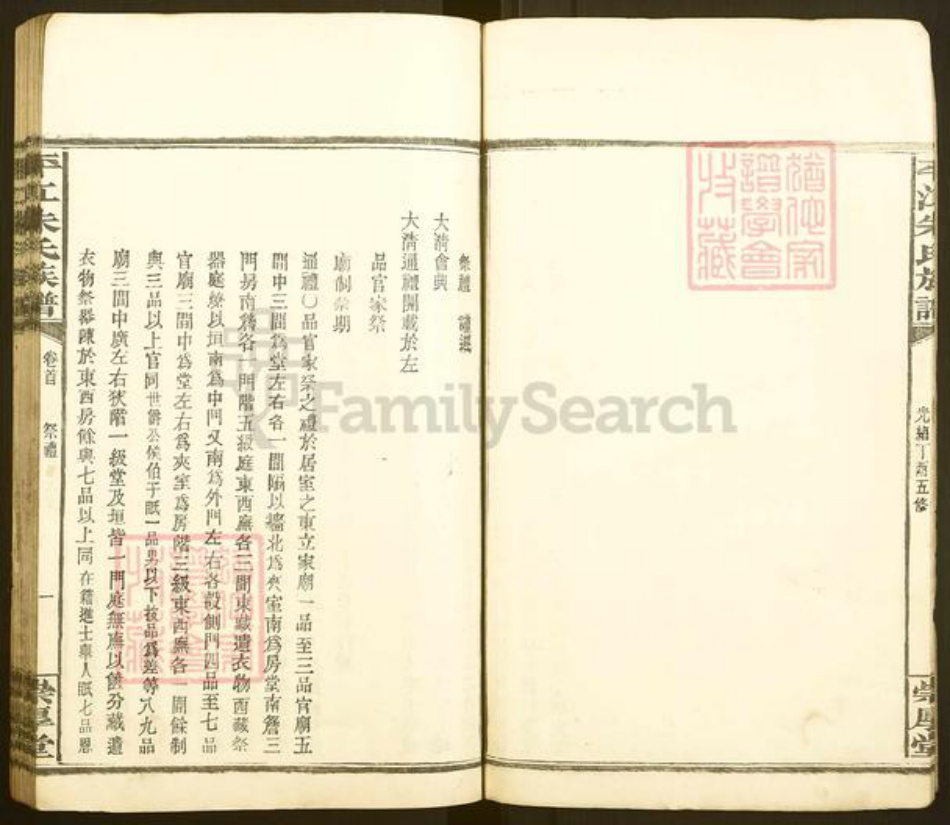 平江朱氏族譜
光緒丁酉五修
崇厚堂
猶他家譜學會收藏
祭禮 謹遵
大淸會典
大淸通禮開載於左
品官家祭
廟制祭期
通禮○品官家祭之禮於居室之東立家廟一品至三品官廟五
間中三間爲堂左右各一間隔以牆北爲夾室南爲房堂南簷三
門房南簷各一門階五級庭東西廡各三間東藏遺衣物西藏祭
器庭繚以垣南爲中門又南爲外門左右各設側門四品至七品
官廟三間中爲堂左右爲夾室爲房階三級東西廡各一間餘制
與三品以上官同世爵公侯伯子旣一品男以下按品爲差等八九品
廟三間中廣左右狹階一級堂及垣皆一門庭無廡以篋分藏遺
衣物祭器陳於東西房餘與七品以上同在籍進士舉人旣七品恩
平江朱氏族譜
卷首
祭禮
一
崇厚堂
猶他家譜學會收藏
FamilySearch